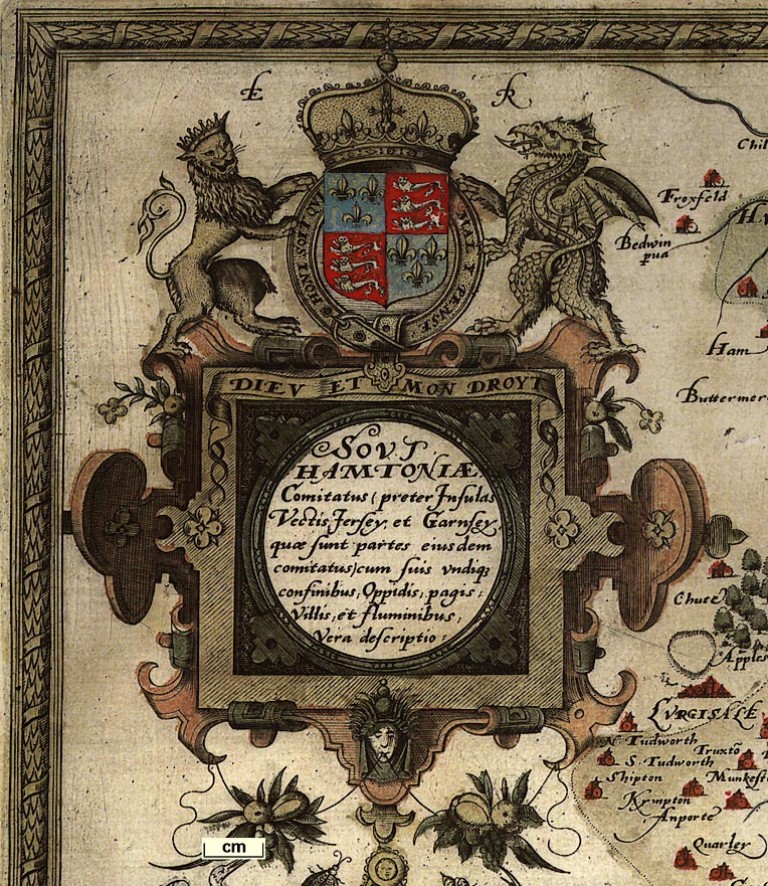 E R
HONI SOIT QVI MAL Y PENSE
DIEV ET MON DROYT
SOVT
HAMTONIÆ
Comitatus (preter Insulas
Vectis, Jersey, et Garnsey,
quæ sunt partes eiusdem
comitatus) cum suis vndiq;
confinibus, Oppidis, pagis,
Villis, et fluminibus,
Vera descriptio:
Chil
Froxfeld
Bedwin
pua
Ham
Buttermer
Chute
Apples
LVRGISALE
N. Tudworth
Truxtō
S. Tudworth
Shipton
Munkest
Krympton
Anporte
Quarley
cm